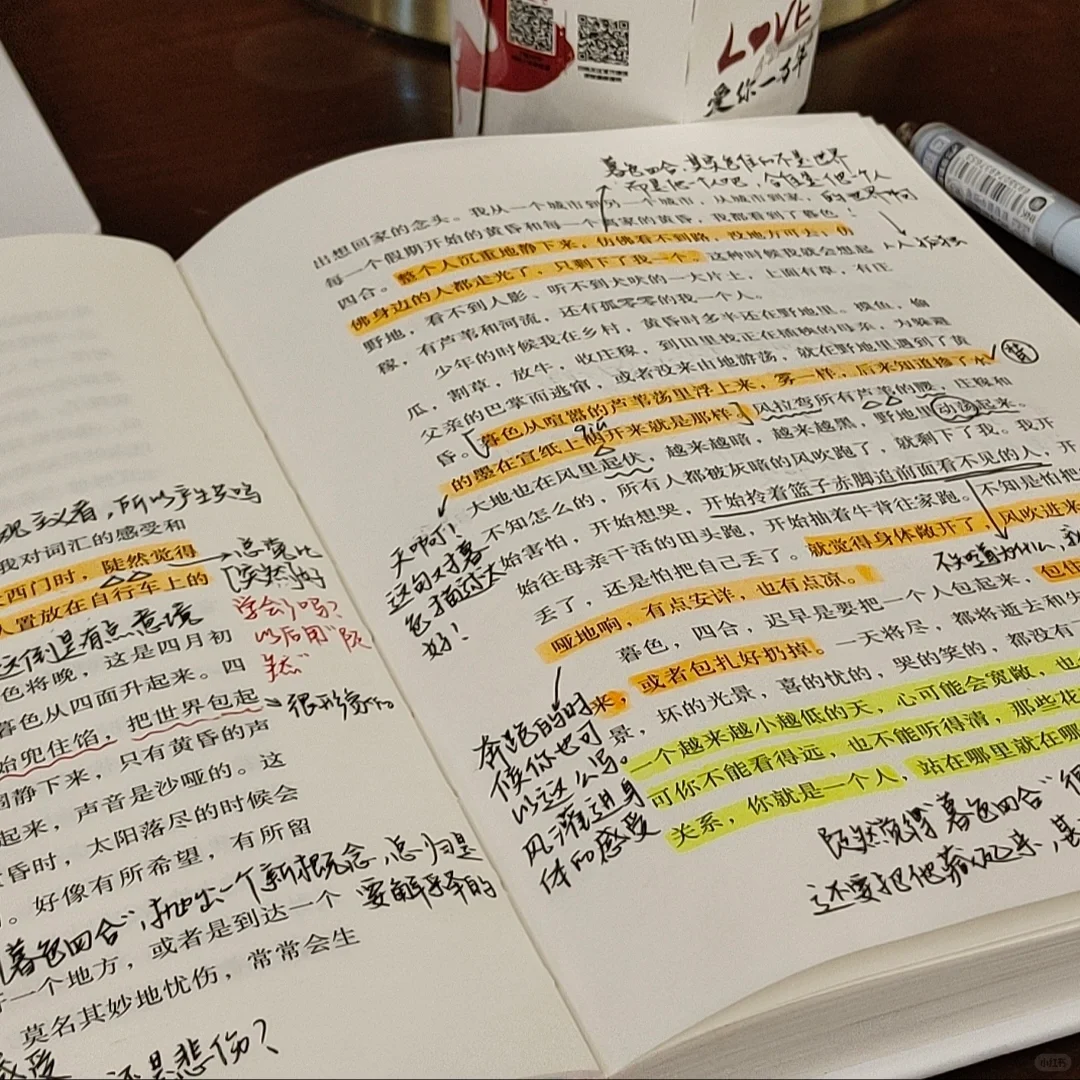 LOVE
爱你一万年
暮色四合,其实包住的不是世界
而是他一个人吧,合住是他一个人
的世界啊
人孤独
出想回家的念头。我从一个城市到另一个城市,从城市到家,
每一个假期开始的黄昏和每一个离家的黄昏,我都看到了暮色
四合。整个人沉重地静下来,仿佛看不到路,没地方可去,仿
佛身边的人都走光了,只剩下了我一个。这种时候我就会想起
野地,看不到人影、听不到犬吠的一大片土,上面有草,有庄
稼,有芦苇和河流,还有孤零零的我一个人。
少年的时候我在乡村,黄昏时多半还在野地里。摸鱼,偷
瓜,割草,放牛,收庄稼,到田里找正在插秧的母亲,为躲避
父亲的巴掌而逃窜,或者没来由地游荡,就在野地里遇到了黄
昏。暮色从喧嚣的芦苇荡里浮上来,雾一样,后来知道掺了水
的墨在宣纸上洇开来就是那样。风拉弯所有芦苇的腰,庄稼和
大地也在风里起伏,越来越暗,越来越黑,野地里动荡起来。
不知怎么的,所有人都被灰暗的风吹跑了,就剩下了我。我开
始害怕,开始想哭,开始拎着篮子赤脚追前面看不见的人,开
始往母亲干活的田头跑,开始抽着牛背往家跑。不知是怕把
丢了,还是怕把自己丢了。就觉得身体敞开了,风吹进来
哑地响,有点安详,也有点凉。
暮色,四合,迟早是要把一个人包起来,包住
来,或者包扎好扔掉。一天将尽,都将逝去和失
景,坏的光景,喜的忧的,哭的笑的,都没有了
一个越来越小越低的天,心可能会宽敞,也
可你不能看得远,也不能听得清,那些花
关系,你就是一个人,站在哪里就在哪
天啊!
这句对暮
色描述太
好!
不知道为什么,
奔跑的时
候你也可
以这么写。
风灌进身
体的感受
既然觉得“暮色四合”很
还要把他藏起来,
观主义者,所以产生共鸣
我对词汇的感受和
西门时,陡然觉得
人置放在自行车上的
总觉比
突然好
学会了吗?
以后用“陡
然”
这倒是有点意境
色将晚,这是四月初
暮色从四面升起来。四
始兜住馅,把世界包起
很形象
周静下来,只有黄昏的声
起来,声音是沙哑的。这
昏时,太阳落尽的时候会
好像有所希望,有所留
暮色四合”,抛出一个新概念,总归是
要解释的
或者是到达一个
一个地方,
莫名其妙地忧伤,常常会生
感受
还是悲伤?
小红书